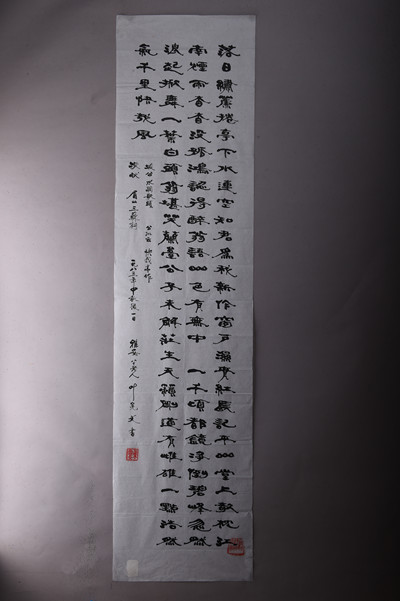 落日繡簾捲亭下水連空知君為我新作窗戶濕青紅長記平山堂上欹枕江
南煙雨杳杳沒孤鴻認得醉翁語山色有無中一千頃都鏡淨倒碧峰忽然
浪起掀舞一葉白頭翁堪笑蘭臺公子未解莊生天籟剛道有雌雄一點浩然
氣千里快哉風
坡公水調歌頭
眉山三蘇祠 一九八三年中秋後一日 雅安 老人 書